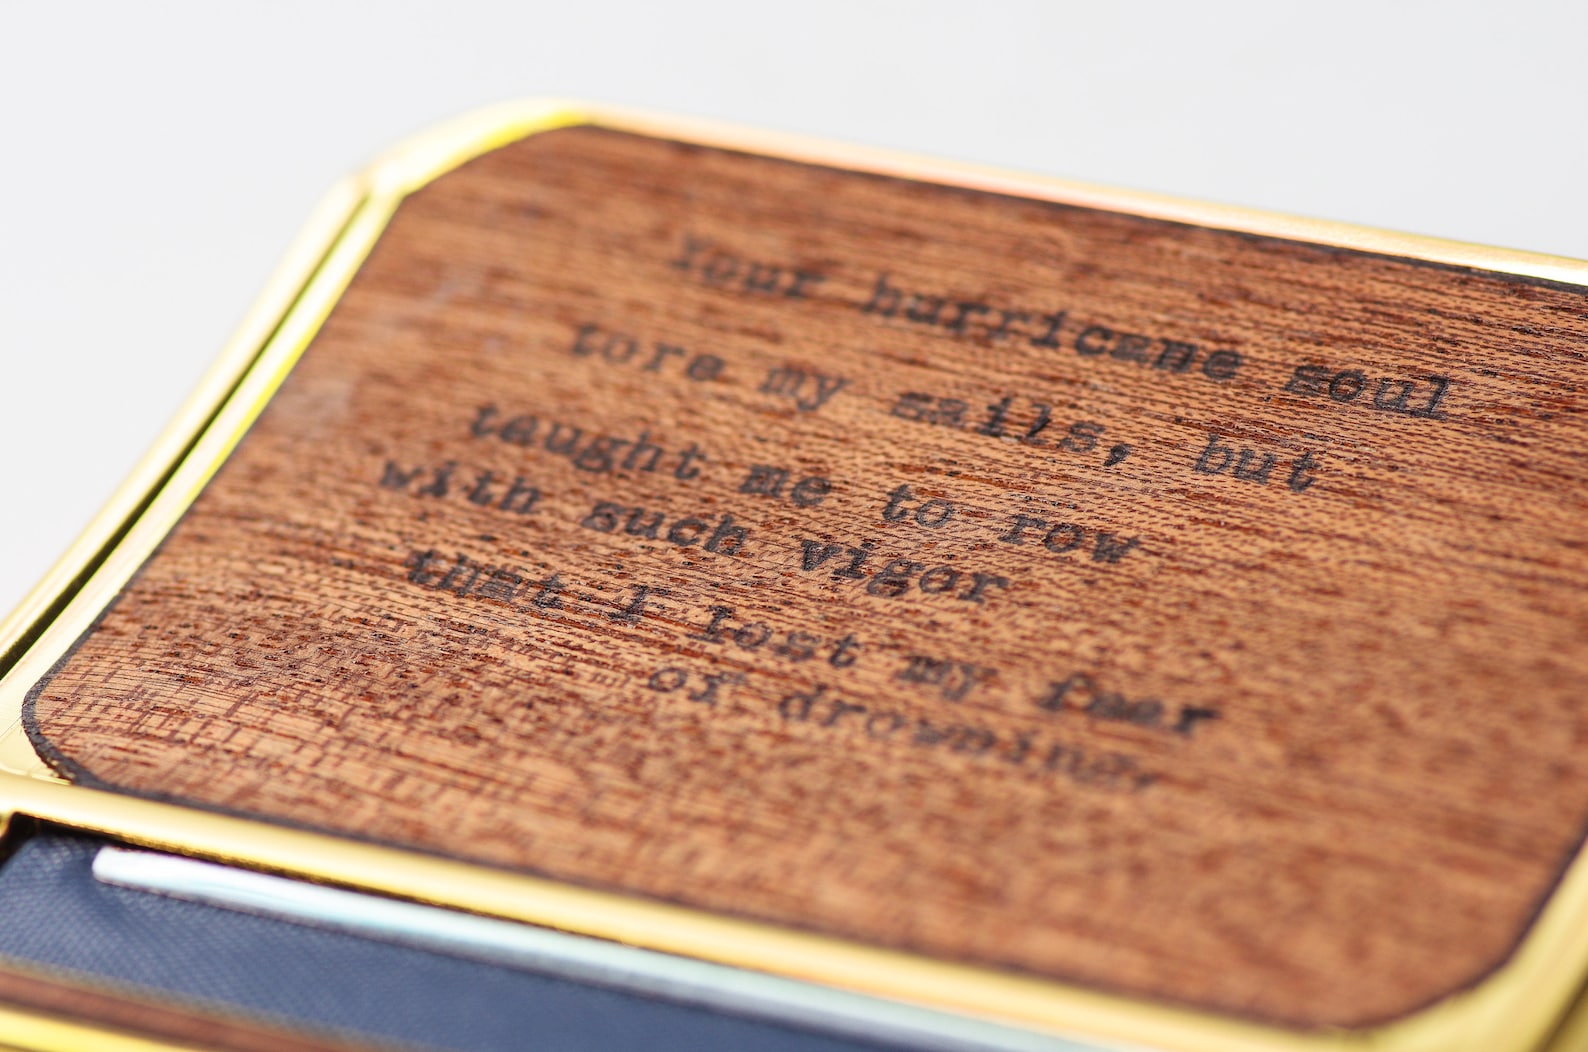 Your hurricane soul
tore my sails, but
taught me to row
with such vigor
that I lost my fear
of drowning.